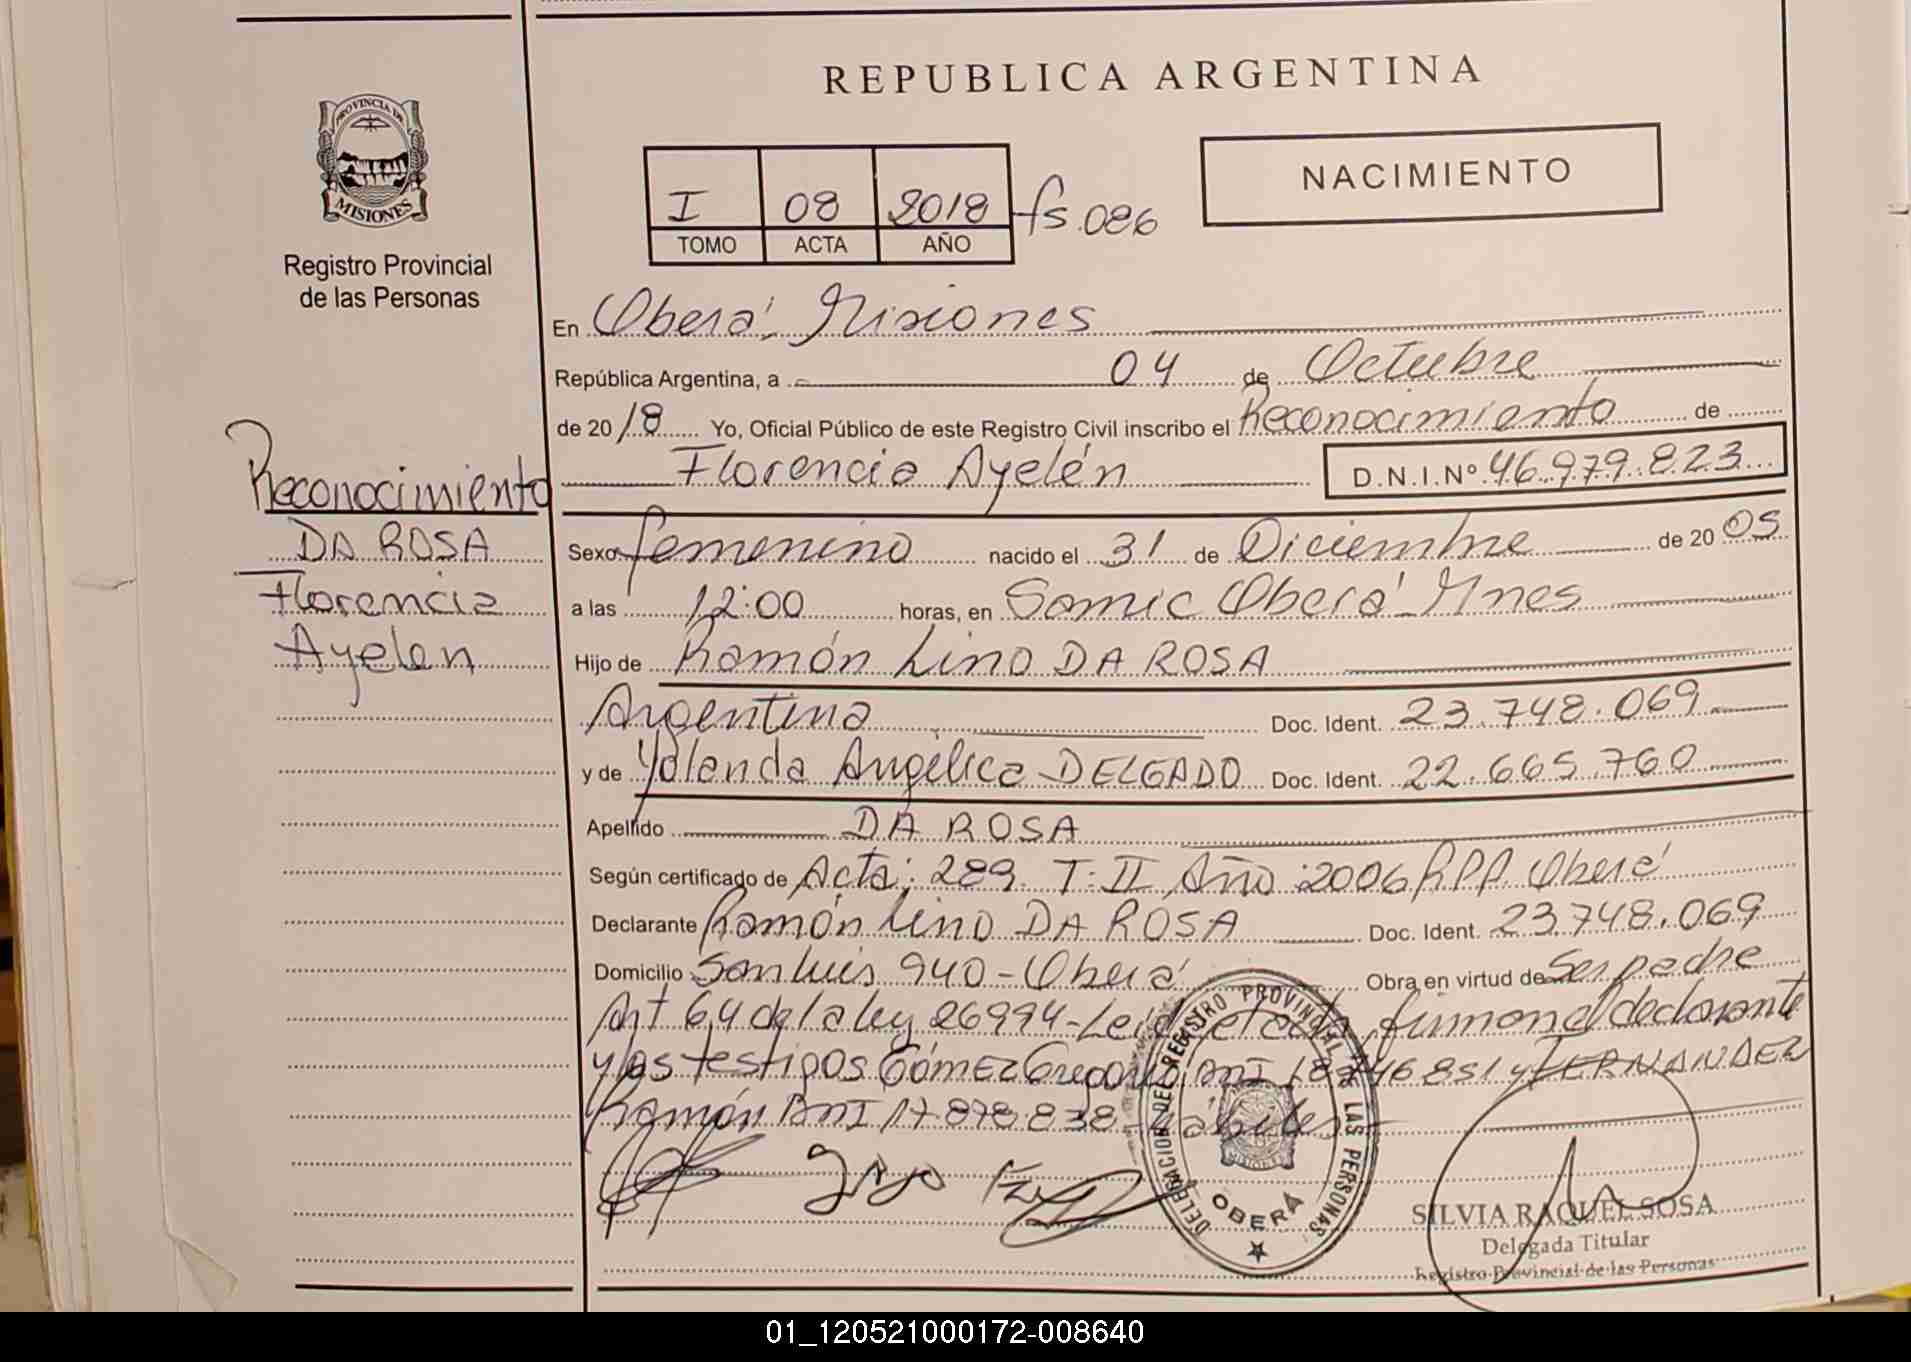 REPUBLICA ARGENTINA
PROVINCIA DE
MISIONES
Registro Provincial
de las Personas
I 08 2018 fs.086
TOMO ACTA AÑO
NACIMIENTO
En Oberá Misiones
República Argentina, a 04 de Octubre
de 2018 Yo, Oficial Público de este Registro Civil inscribo el Reconocimiento de
Florencia Ayelén D.N.I.Nº 46.979.823
Reconocimiento
DA ROSA
Florencia
Ayelen
Sexo femenino nacido el 31 de Diciembre de 2005
a las 12:00 horas, en Samic Oberá Mnes
Hijo de Ramón Lino DA ROSA
Argentina Doc. Ident. 23.748.069
y de Yolanda Angélica DELGADO Doc. Ident. 22.665.760
Apellido DA ROSA
Según certificado de Acta: 289 T: II Año: 2006 RPP Oberá
Declarante Ramón Lino DA ROSA Doc. Ident. 23.748.069
Domicilio San Luis 940 - Oberá Obra en virtud de Ser padre
Art 64 de la ley 26994 - Leída el acta, firman el declarante
y los testigos GÓMEZ Gregorio DNI 18.746851 y FERNANDEZ
Ramón DNI 17.878.838
DELEGACION DEL REGISTRO PROVINCIAL DE LAS PERSONAS
OBERÁ
SILVIA RAQUEL SOSA
Delegada Titular
Registro Provincial de las Personas
01_120521000172-008640